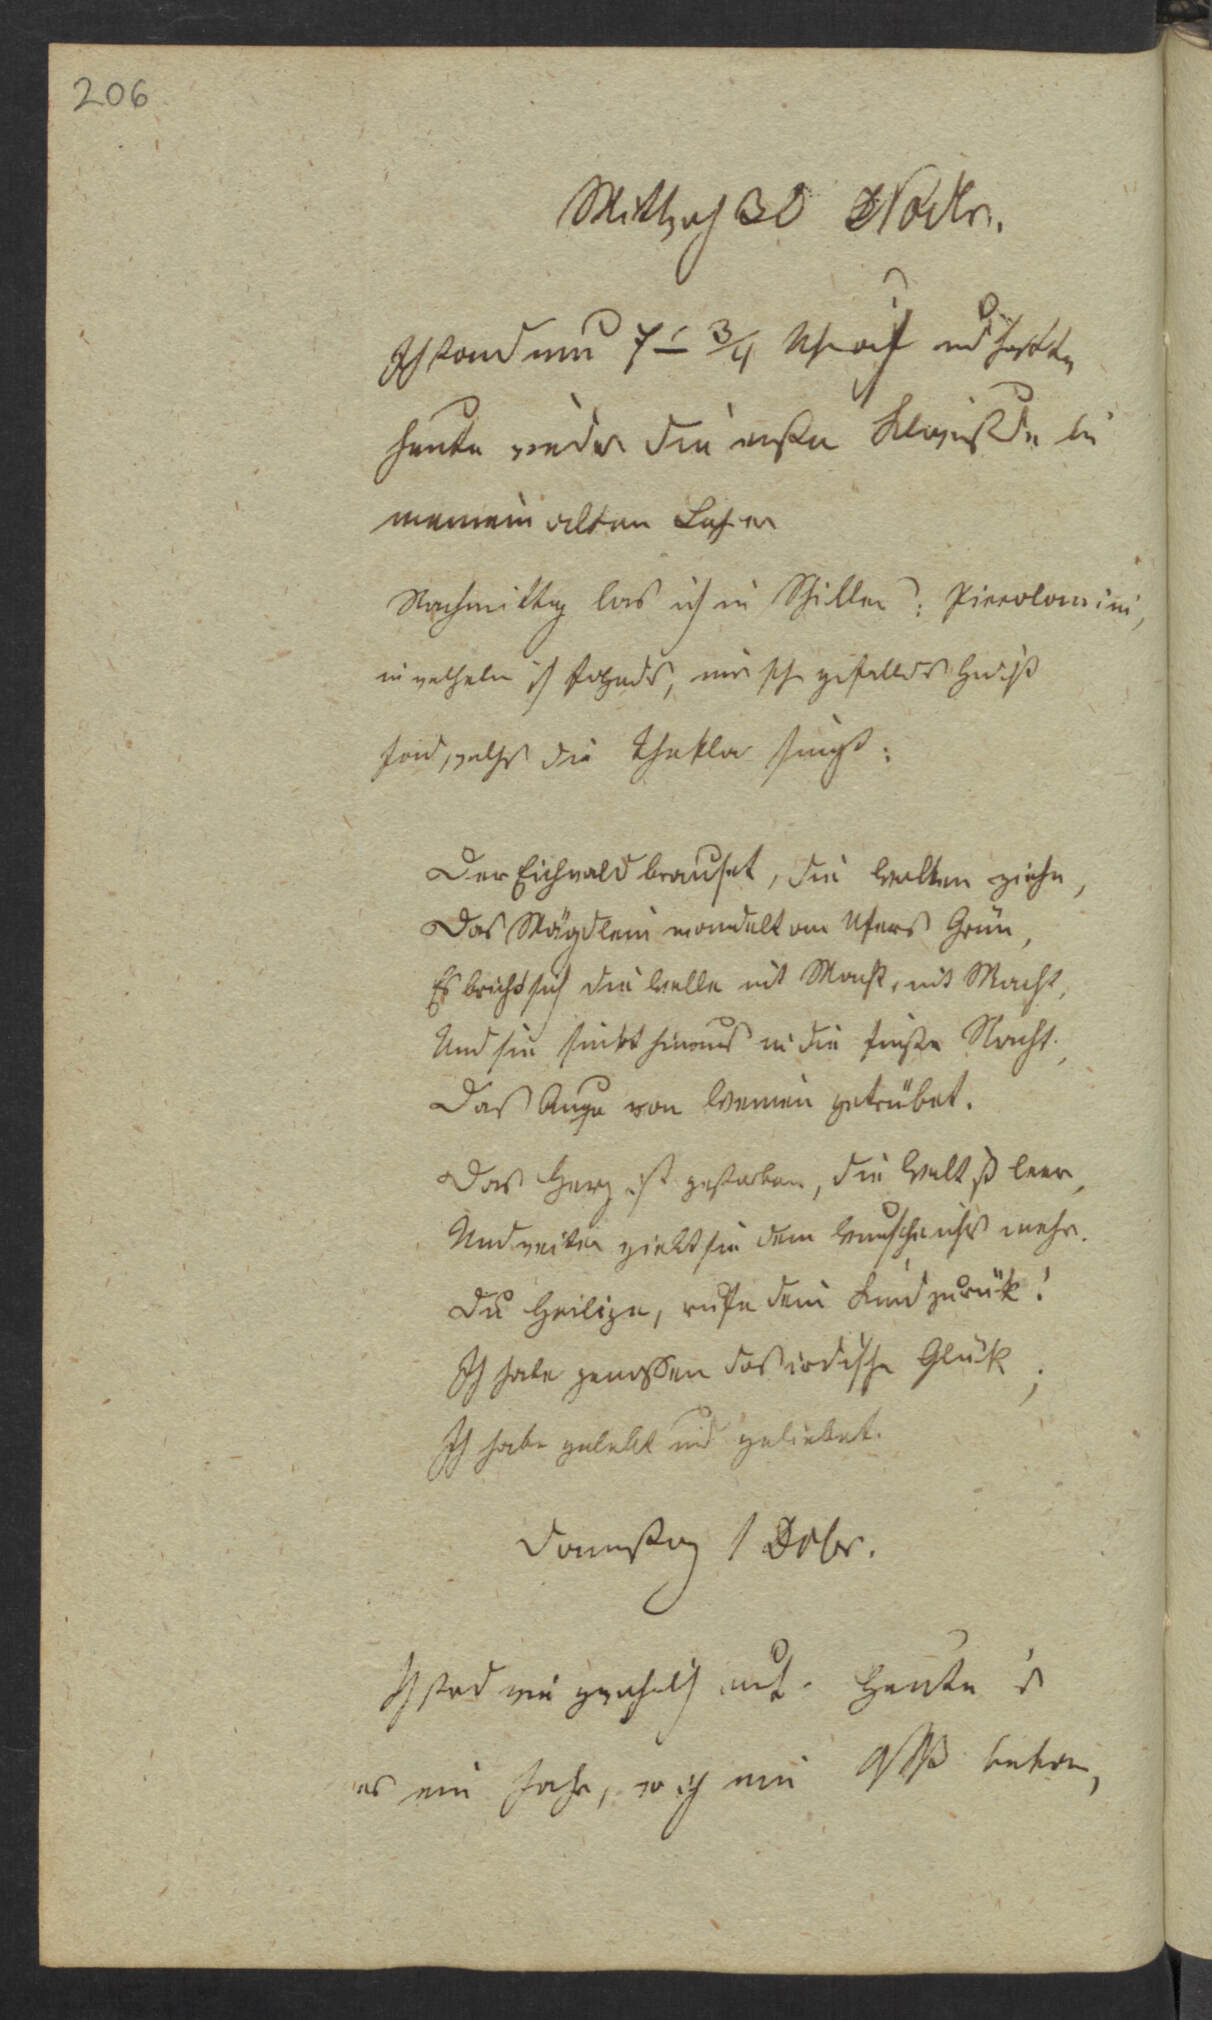 206
Mittwoch 30 Novbr.
Ich stand um 7 - 3/4 Uhr auf und hatte
heute wieder die erste Klavierstde bei
meinem alten Lehrer
Nachmittag las ich in Schiller: Piccolomini,
in welchem ich folgends, mir sehr gefallds Gedicht
fand, welchs die Thekla singt:
Der Eichwald brauset, die Wolken ziehn,
Das Mägdlein wandelt an Ufers Grün,
Es bricht sich die Welle mit Macht, mit Macht,
Und sie singt hinaus in die finstre Nacht,
Das Auge von Weinen getrübet.
Das Herz ist gestorben, die Welt ist leer,
Und weiter giebt sie dem Wunsche nichts mehr.
Du Heilige, rufe dein Kind zurük!
Ich habe genossen das irdische Glük,
Ich habe gelebt und geliebet.
Donnerstag 1 Dcbr.
Ich stand wie gewöhnlich auf. Heute is
es ein Jahr, wo ich mein bekam,